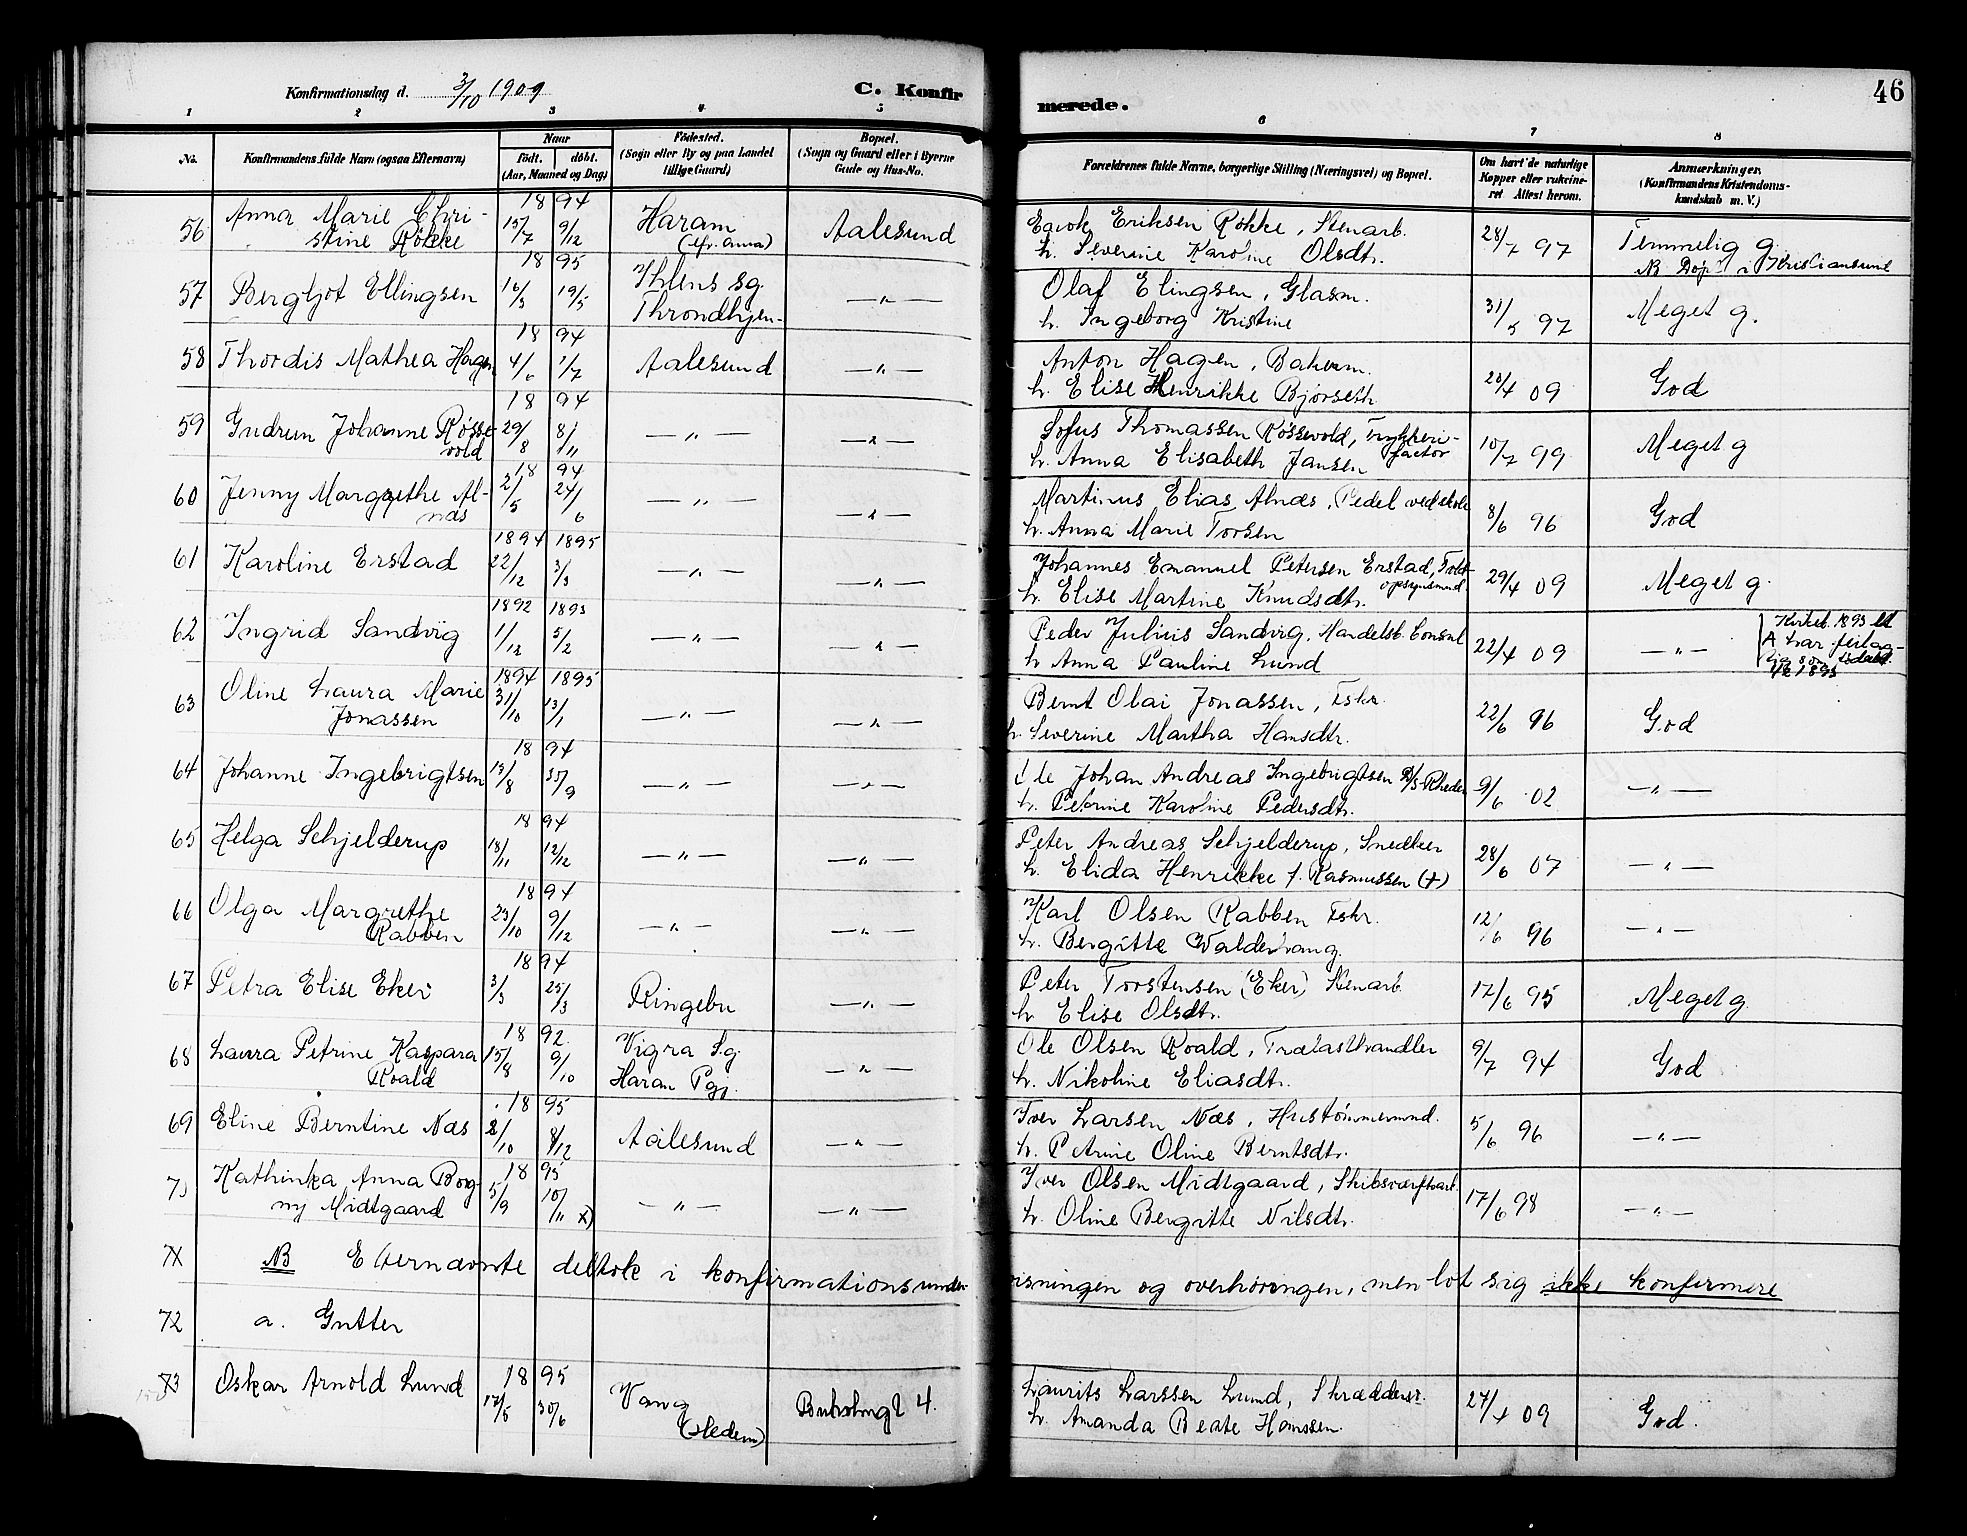 Konfirmationsdag d. 3/10 1909
C. Konfir
merede.
46
1 2 3 4 5 6 7 8
No.
Konfirmandens fulde Navn (ogsaa Efternavn)
Naar
født. døbt.
(Aar, Maaned og Dag)
Fødested.
(Sogn eller By og paa Landet
tillige Gaard)
Bopæl.
(Sogn og Gaard eller i Byerne
Gade og Hus-No.
Forældrenes fulde Navne, borgerlige Stilling (Næringsvei) og Bopæl.
Om havt de naturlige
Kopper eller vakcine-
ret Attest herom.
Anmærkninger.
(Konfirmandens Kristendoms-
kundskab m. V.)
18 94
56 Anna Marie Chri- 15/7 9/12 Haram Aalesund Eriksen Røkke, Stenarb. 28/7 97 Temmelig g.
stine Røkke h. Severine Karoline Olsdtr. NB Døpt i Kristiansund
18 95
57 Bergljot Ellingsen 16/3 19/5 Ihlens sg. —"— Olaf Elingsen, Glasm. 31/5 97 Meget g.
Throndhjem h. Ingeborg Kristine
18 94
58 Thordis Mathea Hagen 4/6 1/7 Aalesund —"— Anton Hagen, Bakerm. 23/4 09 God
h. Elise Henrikke Bjørseth
18 94
59 Gudrun Johanne Røsse- 29/8 8/11 —"— —"— Sofus Thomassen Røssevold, Trykkeri- 10/7 99 Meget g
vold h. Anna Elisabeth Jansen factor
18 94
60 Jenny Margrethe Al- 2/5 24/6 —"— —"— Martinus Elias Alnæs, Pedel ved skole 8/6 96 God
næs h. Anna Marie Torsen
1894 1895
61 Karoline Erstad 22/12 3/3 —"— —"— Johannes Emanuel Petersen Erstad, Told- 29/4 09 Meget g.
h. Elise Martine Knudsdtr. opsynsmand
1892 1893
62 Ingrid Sandvig 1/12 5/2 —"— —"— Peder Julius Sandvig, Handelsb. Consul 22/4 09 —"— Kirkeb. 1893
h Anna Pauline Lund A har feilag-
tig som
1/12 1893
1894 1895
63 Oline Laura Marie 31/10 13/1 —"— —"— Bernt Olai Jonassen, Fskr. 22/6 96 God
Jonassen h. Severine Martha Hansdtr.
18 94
64 Johanne Ingebrigtsen 15/8 30/9 —"— —"— Ole Johan Andreas Ingebrigtsen D/S-Rheder 9/6 02 —"—
h. Petrine Karoline Pedersdtr.
18 94
65 Helga Schjelderup 18/11 12/12 —"— —"— Peter Andreas Schjelderup, Snedker 28/6 07 —"—
h. Elida Henrikke f. Rasmussen (+)
18 94
66 Olga Margrethe 23/10 9/12 —"— —"— Karl Olsen Rabben Fskr. 12/6 96 —"—
Rabben h. Bergitte Walderhaug.
18 94
67 Petra Elise Eker 3/3 25/3 Ringebu —"— Peter Torstensen (Eker) Stenarb 17/6 95 Meget g.
h. Elise Olsdtr.
18 92
68 Laura Petrine Kaspara 15/8 9/10 Vigra Sg. —"— Ole Olsen Roald, Trælasthandler 9/7 94 God
Roald Haram Pgj. h. Nikoline Eliasdtr.
18 95
69 Eline Berntine Næs 2/10 8/12 Aalesund —"— Iver Larsen Næs, Hustømmermnd. 5/6 96 —"—
h. Petrine Oline Berntsdtr.
18 95
70 Kathinka Anna Borg- 5/9 10/11 x) —"— —"— Iver Olsen Midtgaard, Skibsværftsarb. 17/6 98 —"—
ny Midtgaard h. Oline Bergitte Nilsdtr.
71 NB Efternævnte deltok i konfirmationsunder- visningen og overhøringen, men lot sig ikke konfirmere
72 a. Gutter
18 95
73 Oskar Arnold Lund 17/5 30/6 Vang Buholmgt 4. Laurits Larssen Lund, Skrædder 27/4 09 God.
(Hedem) h. Amanda Beate Hanssen.